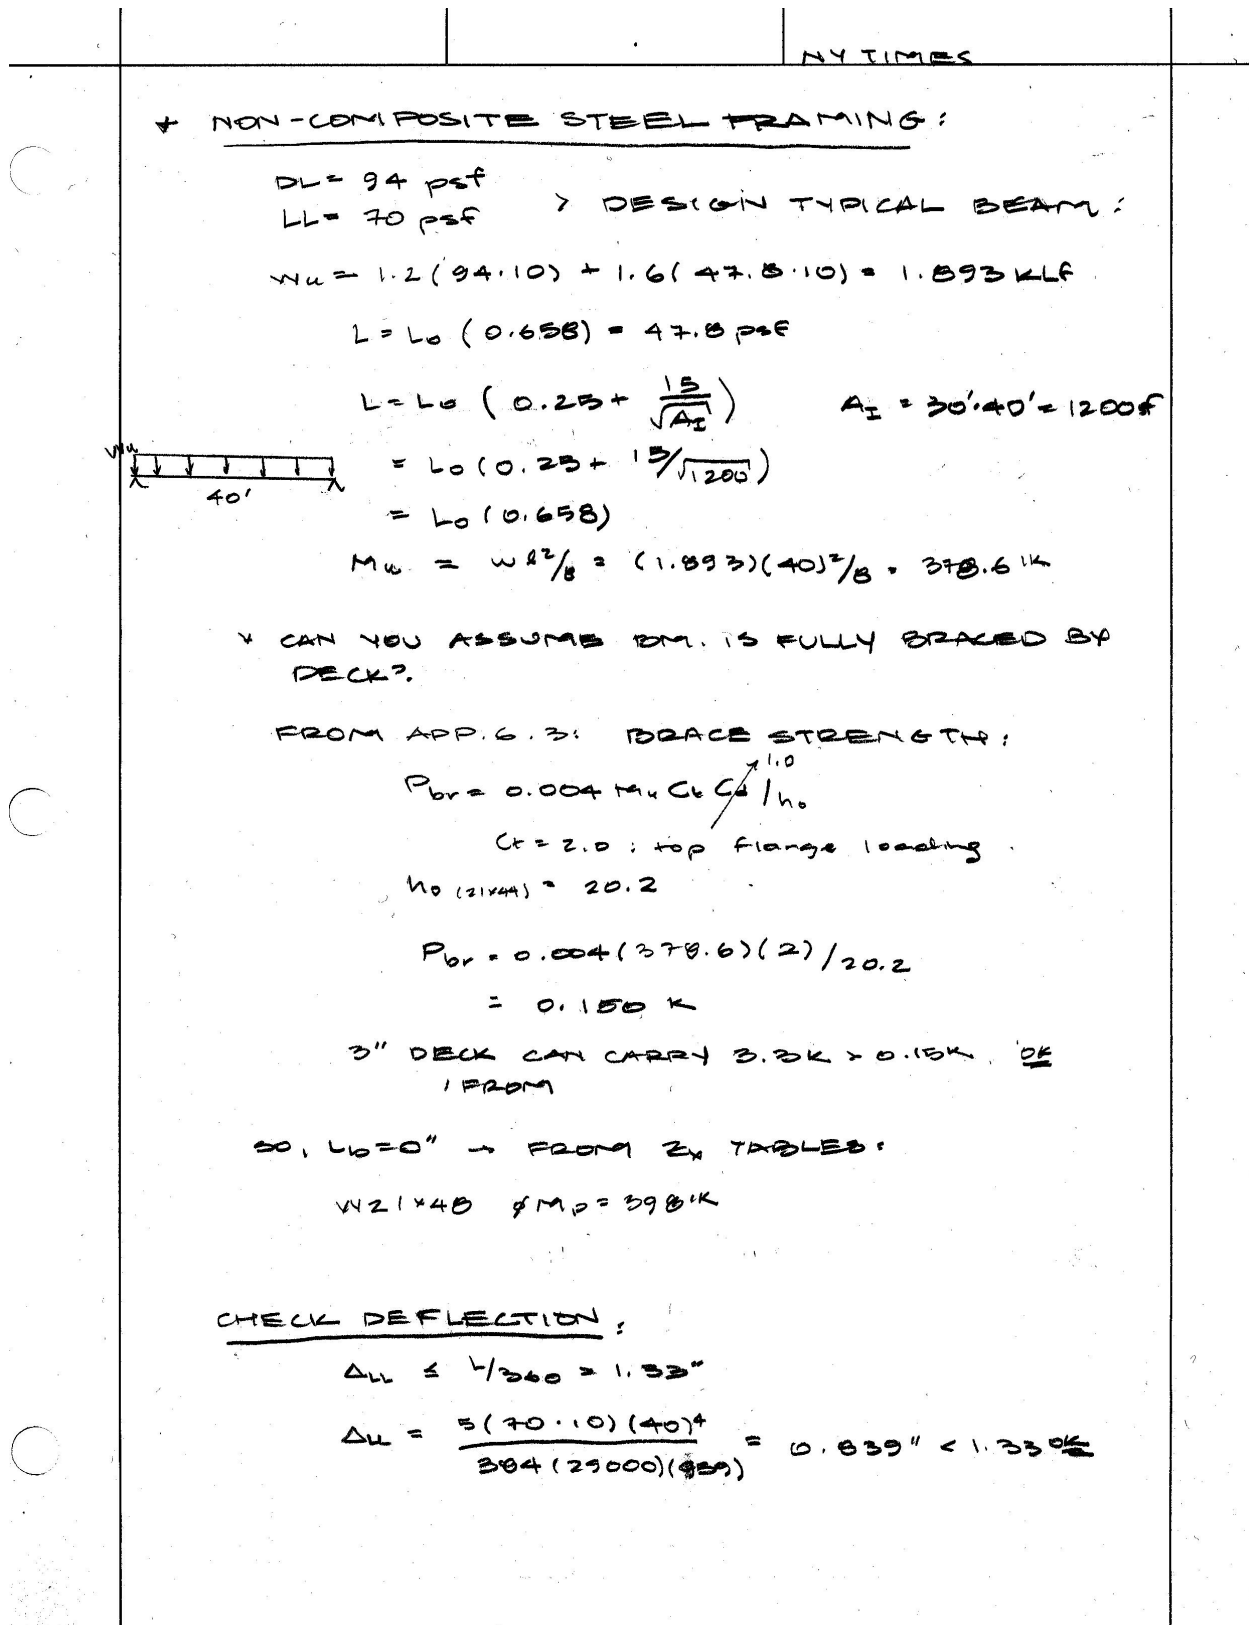 NY TIMES
* NON-COMPOSITE STEEL FRAMING:
DL= 94 psf
LL= 70 psf > DESIGN TYPICAL BEAM:
Wu = 1.2(94·10) + 1.6(47.8·10) = 1.893 KLF
L = Lo (0.658) = 47.8 psf
L = Lo (0.25 + 15/√AI) AI = 30'·40' = 1200 sf
Wu
= Lo (0.25 + 15/√1200)
40'
= Lo (0.658)
Mu = wl²/8 = (1.893)(40)²/8 = 378.6 'K
* CAN YOU ASSUME BM. IS FULLY BRACED BY
DECK?
FROM APP. 6.3: BRACE STRENGTH:
1.0
Pbr = 0.004 Mu Ct Cd /ho
Ct = 2.0 : top flange loading
ho (21x44) = 20.2
Pbr = 0.004(378.6)(2)/20.2
= 0.150 K
3" DECK CAN CARRY 3.3K > 0.15K OK
FROM
SO, Lb=0" → FROM Zx TABLES:
W21x48 φMp = 398 'K
CHECK DEFLECTION:
ΔLL ≤ L/360 = 1.33"
ΔLL = 5(70·10)(40)⁴ / 384(29000)(959) = 0.839" < 1.33 OK